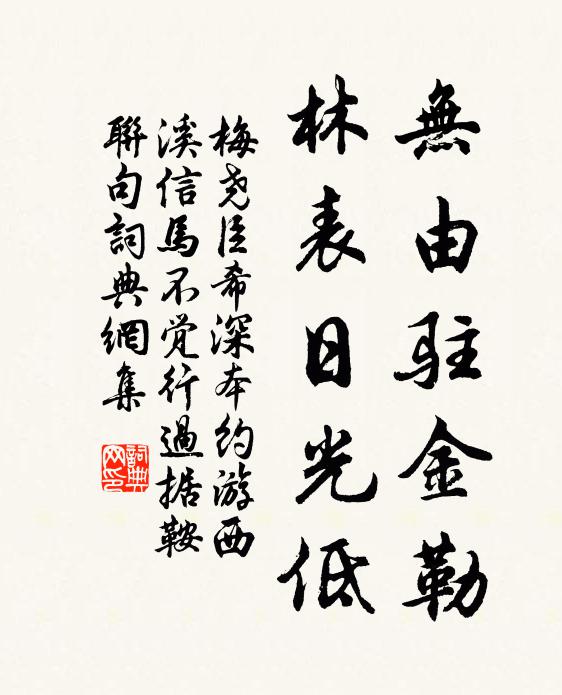 無由駐金勒
林表日光低
梅尧臣希深本约游西
溪信馬不觉行過据鞍
聯句詞典網集
詞典网印